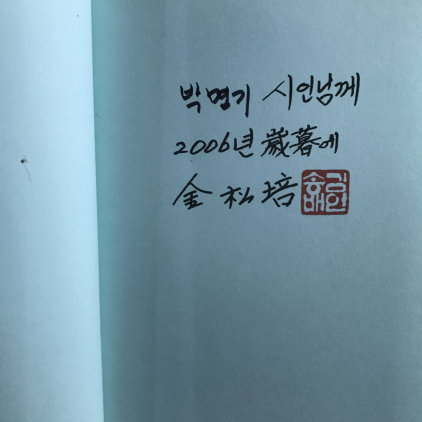 박명기 시인님께
2006년 歲暮에
金松培